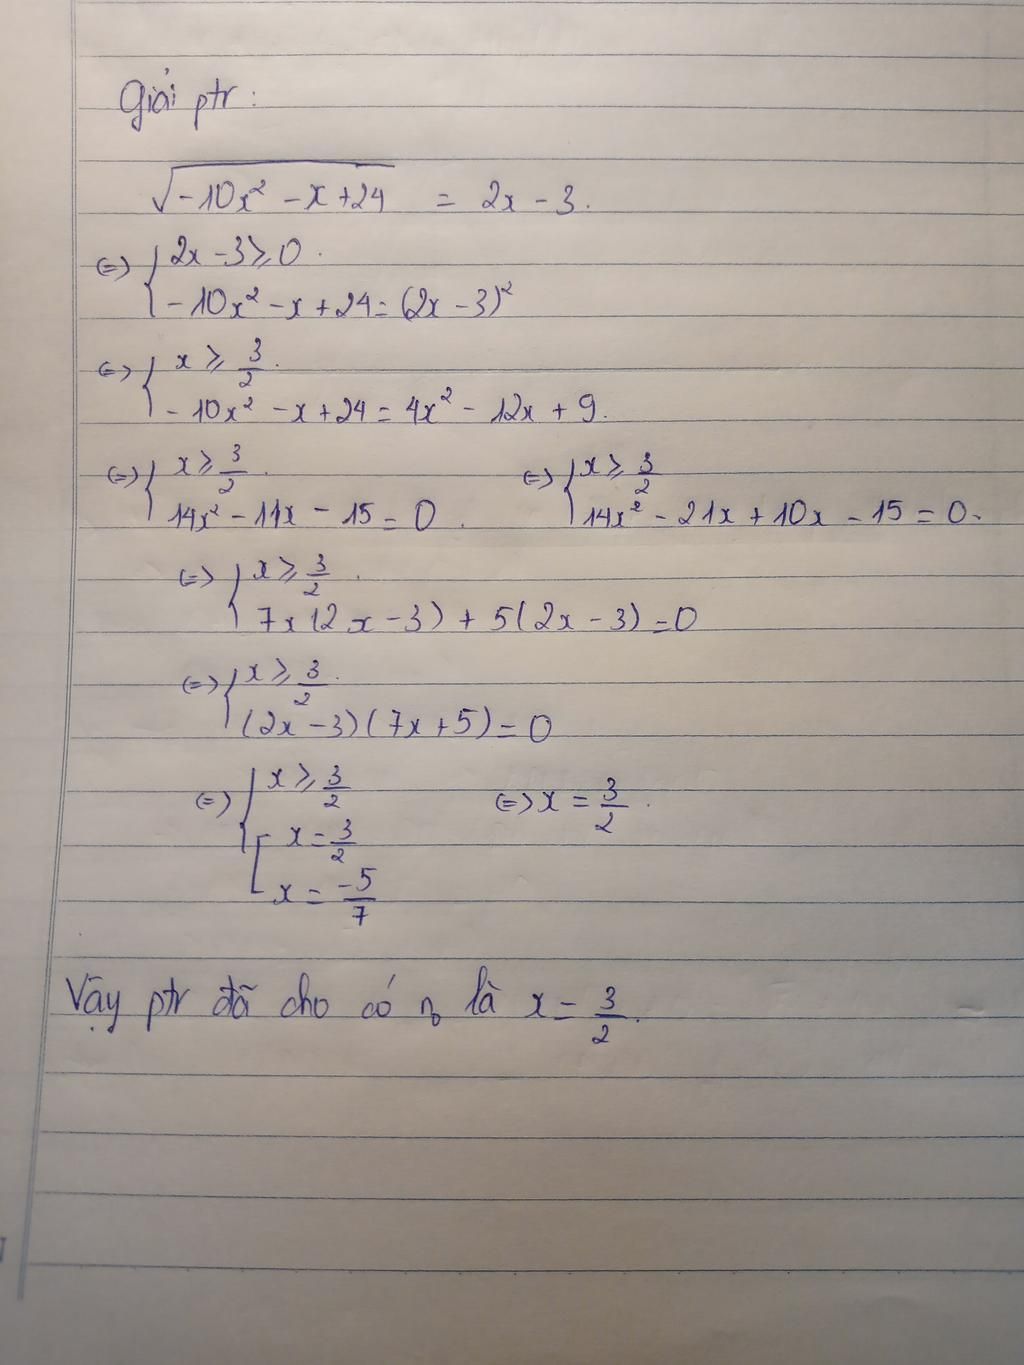 Giải ptr :
√(-10x² - x + 24) = 2x - 3.
(=) { 2x - 3 ⩾ 0.
-10x² - x + 24 = (2x - 3)²
(=) { x ⩾ 3/2.
-10x² - x + 24 = 4x² - 12x + 9.
(=) { x ⩾ 3/2.
14x² - 11x - 15 = 0.
(=) { x ⩾ 3/2
14x² - 21x + 10x - 15 = 0.
(=) { x ⩾ 3/2.
7x(2x - 3) + 5(2x - 3) = 0
(=) { x ⩾ 3/2.
(2x - 3)(7x + 5) = 0
(=) { x ⩾ 3/2
[ x = 3/2
x = -5/7
(=) x = 3/2.
Vậy ptr đã cho có n₀ là x = 3/2.